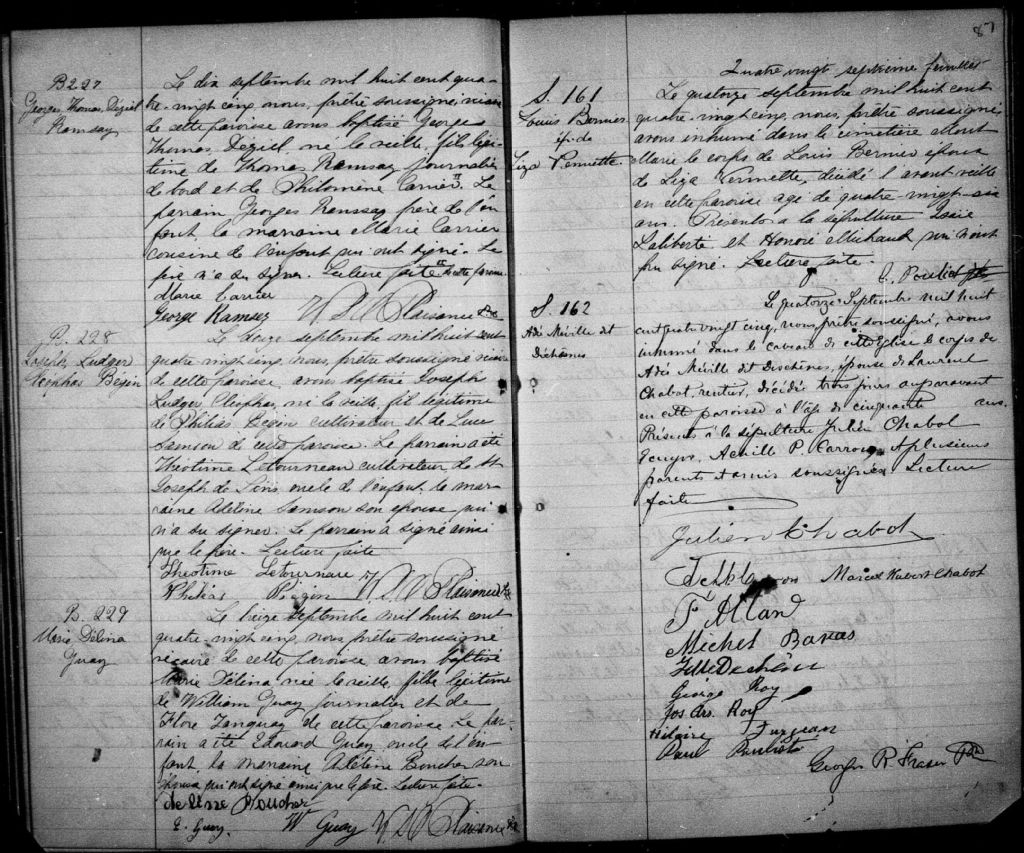 B 227
Georges Thomas Déziel
Ramsay
Le dix septembre mil huit cent qua-
tre-vingt cinq, nous, prêtre soussigné, vicaire
de cette paroisse avons baptisé Georges
Thomas Deziel né la veille, fils légi-
time de Thomas Ramsay journalier
de bord et de Philomène Carrier. Le
parrain Georges Ramsay frère de l'en
fant, la marraine Marie Carrier
cousine de l'enfant qui ont signé. Le
père n'a su signer. Lecture faite
Marie Carrier
George Ramsey
B. 228
Joseph Ludger
Cléophas Bégin
Le douze septembre mil huit cent
quatre vingt cinq, nous, prêtre soussigné vicaire
de cette paroisse, avons baptisé Joseph
Ludger Cleophas, né la veille, fils légitime
de Philias Bégin cultivateur et de Luce
Samson de cette paroisse. Le parrain a été
Théotime Letourneau cultivateur de St
Joseph de oncle de l'enfant, la mar-
raine Adéline Samson son épouse qui
n'a su signer. Le parrain a signé ainsi
que le père. Lecture faite
Théotime Letournau
Philias Bégin
B. 229
Marie Délina
Guay
Le treize septembre mil huit cent
quatre-vingt cinq, nous, prêtre soussigné
vicaire de cette paroisse, avons baptisé
Marie Délina née la veille, fille légitime
de William Guay journalier et de
Flore Tanguay de cette paroisse. Le par-
rain a été Edouard Guay oncle de l'en
fant, la marraine Boucher son
épouse qui ont signé ainsi que le père. Lecture faite.
Boucher
E. Guay. W Guay
87
Quatre vingt septième feuillet
S. 161
Louis Bernier
ép. de
Liza Vermette
Le quatorze septembre mil huit cent
quatre-vingt cinq, nous, prêtre soussigné
avons inhumé dans le cimetière Mont
Marie le corps de Louis Bernier époux
de Liza Vermette, décédé l'avant veille
en cette paroisse agé de quatre-vingt-six
ans. Présents à la sépulture
Laliberté et Honoré Michaud qui n'ont
pu signé. Lecture faite.
S. 162
Adé Méville dit
Dechênes
Le quatorze Septembre mil huit
cent quatre vingt cinq, nous, prêtre soussigné, avons
inhumé dans le caveau de cette Eglise le corps de
Adé Méville dit Deschênes, épouse de Laurent
Chabot, rentier, décédée trois jours auparavant
en cette paroisse à l'âge de cinquante ans.
Présents à la sépulture Julien Chabot
Ecuyer, Achille P. et plusieurs
parents et amis soussignés. Lecture
faite
Julien Chabot
Marcel Hubert Chabot
Michel
George Roy
Jos Roy
Hilaire
Paul
Georges R. Fraser Ptre